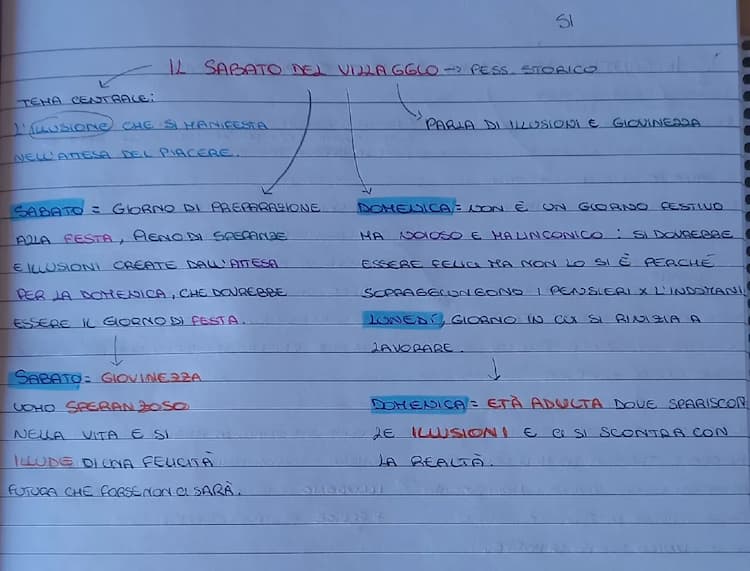 SI
IL SABATO DEL VILLAGGIO → PESS. STORICO
TEMA CENTRALE:
L'ILLUSIONE CHE SI MANIFESTA
NELL'ATTESA DEL PIACERE.
PARLA DI ILLUSIONI E GIOVINEZZA
SABATO = GIORNO DI PREPARAZIONE
ALLA FESTA, PIENO DI SPERANZE
E ILLUSIONI CREATE DALL'ATTESA
PER LA DOMENICA, CHE DOVREBBE
ESSERE IL GIORNO DI FESTA.
DOMENICA = NON È UN GIORNO FESTIVO
MA NOIOSO E MALINCONICO: SI DOVREBBE
ESSERE FELICI MA NON LO SI È PERCHÉ
SOPRAGGIUNGONO I PENSIERI X L'INDOMANI,
LUNEDÌ, GIORNO IN CUI SI RINIZIA A
LAVORARE.
SABATO = GIOVINEZZA
UOMO SPERANZOSO
NELLA VITA E SI
ILLUDE DI UNA FELICITÀ
FUTURA CHE FORSE NON CI SARÀ.
DOMENICA = ETÀ ADULTA DOVE SPARISCON
LE ILLUSIONI E CI SI SCONTRA CON
LA REALTÀ.